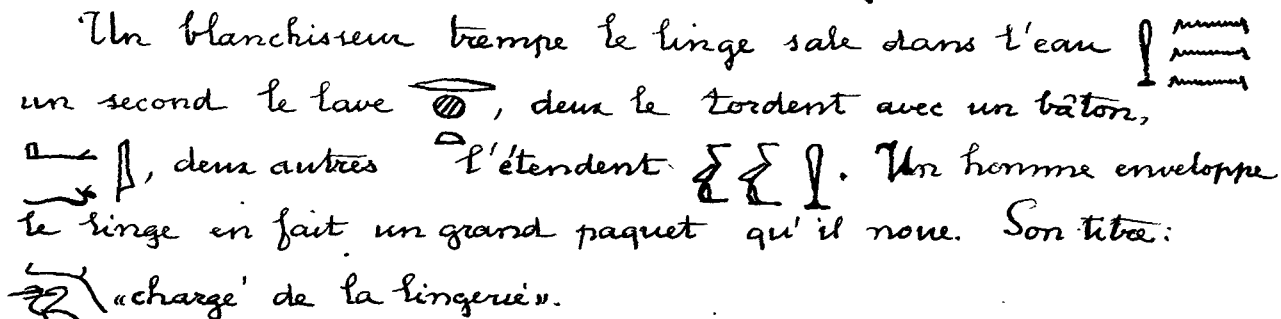 Un blanchisseur trempe le linge sale dans l'eau
un second le lave , deux le tordent avec un bâton,
, deux autres l'étendent . Un homme enveloppe
le linge en fait un grand paquet qu'il noue. Son titre:
«chargé de la lingerie».